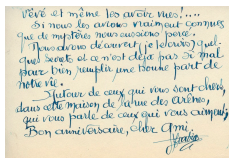 rêvé et même les avoir vues....
Si nous les avions vraiment connues
que de mystères nous eussions percé.
Nous avons découvert (je le crois) quel-
ques secrets et ce n'est déjà pas si mal
pour bien remplir une bonne part de
notre vie.
Autour de ceux qui vous sont chers,
dans cette maison de la rue des Arènes,
qui vous parle de ceux qui vous aiment,
Bon anniversaire, cher Ami.